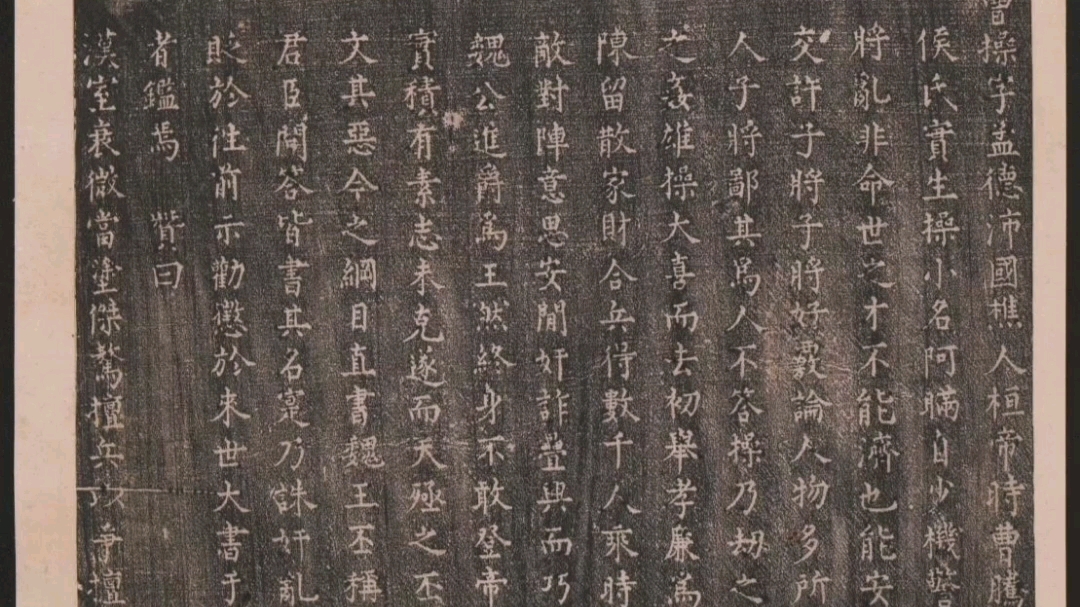 曹操字孟德沛國樵人桓帝時曹騰
侯氏實生操小名阿瞞自少機警
將亂非命世之才不能濟也能安
交許子將子將好覈論人物多所
人子將鄙其爲人不答操乃刼之
之姦雄操大喜而去初舉孝廉爲
陳留散家財合兵得數千人乘時
敵對陣意思安閒奸詐疊興而巧
魏公進爵爲王然終身不敢登帝
實積有素志未克遂而天殛之丕
文其惡今之綱目直書魏王丕稱
君臣閒答皆書其名寔乃誅奸亂
貶於徃前示勸懲於来世大書于
者鑑焉 贊曰
漢室衰微當塗傑驁擅兵 爭擅